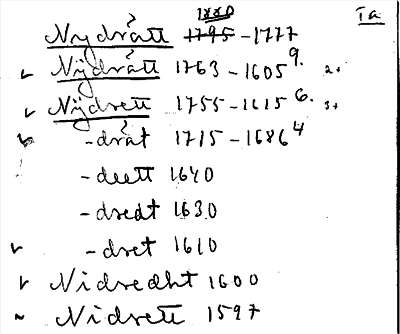 1880 Ia
Nydrått 1795 - 1777
Nÿdrått 1763 - 1605 9. 2+
Nÿdrett 1755 - 1615 6. 3+
- dråt 1715 - 1686 4
- deett 1640
- dredt 1630
- dret 1610
Nidredht 1600
Nidrett 1597